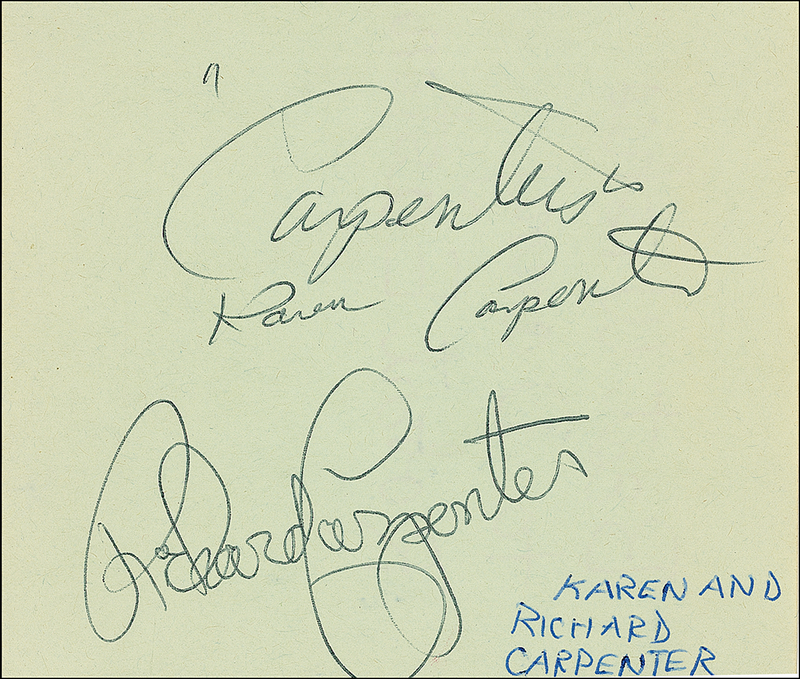 "Carpenters"
Karen Carpenter
Richard Carpenter
KAREN AND
RICHARD
CARPENTER